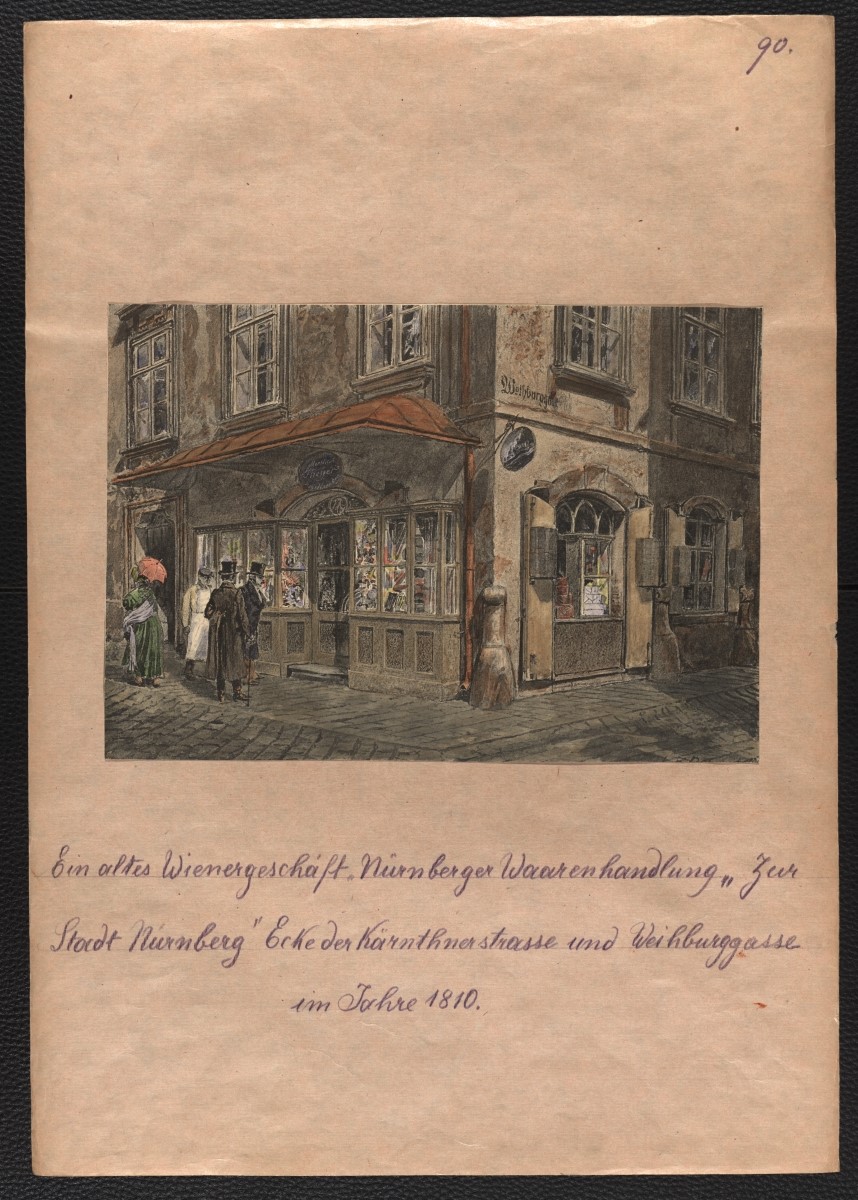 90.
Weihburggasse
Ein altes Wienergeschäft. Nürnberger Waarenhandlung „ Zur
Stadt Nürnberg" Ecke der Kärnthnerstrasse und Weihburggasse
im Jahre 1810.